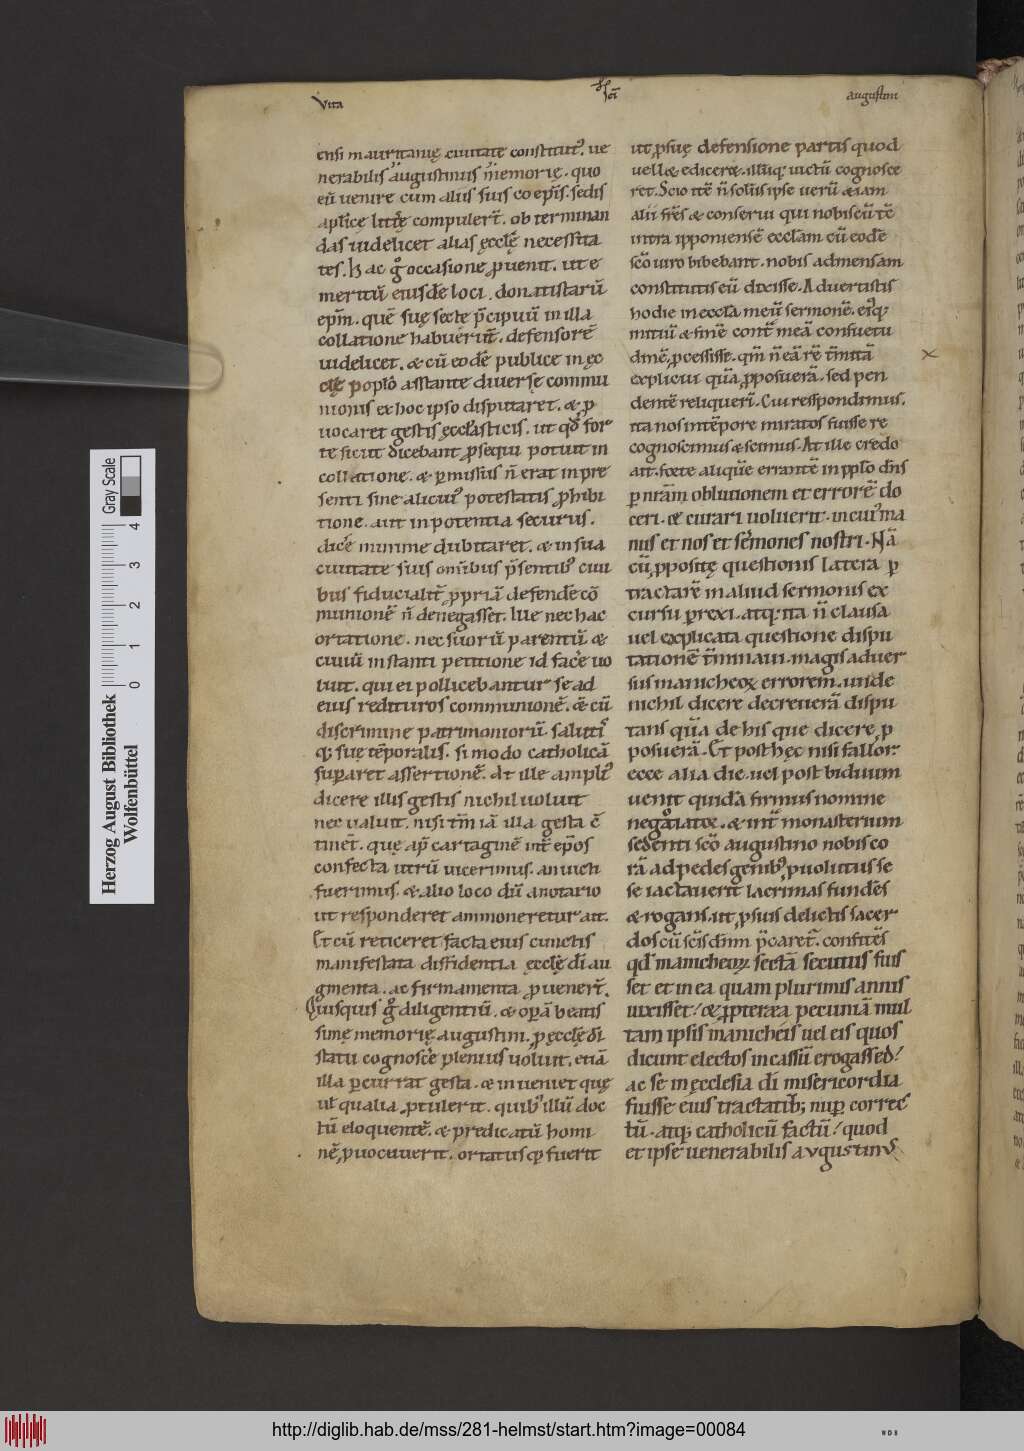 Vita
sci
augustini
ensi mauritanię ciuitate constitut᷒. ue
nerabilis augustinus memorię. quo
eū uenire cum aliis suis coep̄is. sedis
aplicę littę compuler̄. ob terminan
das uidelicet alias ęcclę necessita
tes. Hac g̊ occasione ꝓuenit. ut e
meritū eiusdē loci. donatistarū
ep̄m. quē suę sectę p̄cipuū in illa
collatione habuerūt. defensorē
uidelicet. & cū eodē publice in ęc
clę poplo astante diuersę commu
nionis ex hoc ipso disputaret. & ꝓ
uocaret gestis ęcclasticis. ut qd̄ for
te sicut dicebant ꝓsequi potuit in
collatione. & ꝑmissus n̄ erat in pre
senti sine alicui᷒ potestatis ꝓhibi
tione. aut inpotentia securus.
dicē minime dubitaret. & in sua
ciuitate suis omnībus p̄sentib᷒ ciui
bus fiducialit̄ ꝓpriā defendē cō
munionē n̄ denegasset. Ille nec hac
ortatione. nec suorū parentū &
ciuiū instanti petitione id facē uo
luit. qui ei pollicebantur se ad
eius redituros communionē. &ē cū
discrimine patrimoniorū salutis
q; suę tēporalis. si modo catholicā
suꝑaret assertionē. At ille ampli᷒
dicere illis gestis nichil uoluit
nec ualuit. nisi tm̄ iā illa gesta cō
tinēt. quę ap̄ cartaginē int̄ ep̄os
confecta utrū uicerimus. an uicti
fuerimus. & alio loco dū a notario
ut responderet ammoneretur ait.
Et cū reticeret facta eius cunctis
manifestata diffidentia ęcclę dī au
gmenta. ac firmamenta ꝓuener̄.
Quisquis g̊ diligentiū. & oꝑā beatis
simę memorię augustini. ꝓ ęcclę dī
statu cognoscē plenius uoluit. etiā
illa ꝑcurrat gesta. & inueniet quę
ul̄ qualia ꝓtulerit. quib᷒ illū doc
tū eloquentē. & predicatū homi
nē ꝓuocauerit. ortatusq; fuerit
ut ꝓ suę defensione partis quod
uell& edicere. illūq; uictū cognosce
ret. Scio itē n̄ solūs ipse uerū &iam
alii frēs & conserui qui nobiscū tē
intra ipponiensē ecclam cū eodē
scō uiro bibebant. nobis ad mensam
constitutis eū dixisse. Aduertistis
hodie in eccla meū sermonē. ei᷒q;
initiū & finē cont̄ meā consuetu
dinē ꝓcessisse. qm̄ n̄ eā rē t̄minatā
explicui quā ꝓposuerā. sed pen
dentē reliquerī. Cui respondimus.
ita nos intēpore miratos fuisse re
cognoscimus & scimus. At ille credo
ait. forte aliquē errantē in ppl̄o dn̄s
ꝑ nrām obliuionem et errorē do
ceri. & curari uoluerit. in cui᷒ ma
nus et nos et sermones nostri. Nā
cū ꝓpositę questionis latera ꝑ
tractarē in aliud sermonis ex
cursu ꝑrexi. atq; ita n̄ clausa
uel explicata questione dispu
tationē t̄minaui. magis aduer
sus manicheoꝝ errorem. unde
nichil dicere decreuerā dispu
tans quā de his que dicere ꝓ
posuerā. Et post hęc nisi fallor:
ecce alia die. uel post biduum
uenit quidā firmus nomine
negotiatoꝝ. & int̄ monasterium
sedenti scō augustino nobis co
rā ad pedes genib᷒ ꝓuolutus se
se iactauerit lacrimas fundēs
& rogans. ut ꝓ suis delictis sacer
dos cū scīs dnm p̄caret. confitēs
qd̄ manicheoꝝ sectā secutus fuis
set et in ea quam plurimis annis
uixisset! & ꝓpterea pecuniā mul
tam ipsis manicheis uel eis quos
dicunt electos in cassū erogassed!
ac se in ęcclesia dī misericordia
fuisse eius tractatib; nuꝑ correc
tū. atq; catholicū factū! quod
et ipse uenerabilis avgustinus
Herzog August Bibliothek
Wolfenbüttel
0 1 2 3 4
Gray Scale
http://diglib.hab.de/mss/281-helmst/start.htm?image=00084